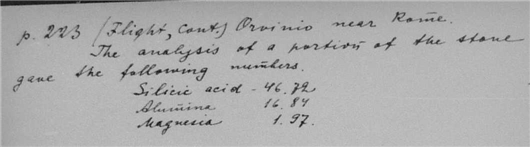 p. 223 (Flight, cont.) Orvinio near Rome.
The analysis of a portion of the stone
gave the following numbers.
Silicic acid - 46.72
Alumina 16.84
Magnesia 1.97.